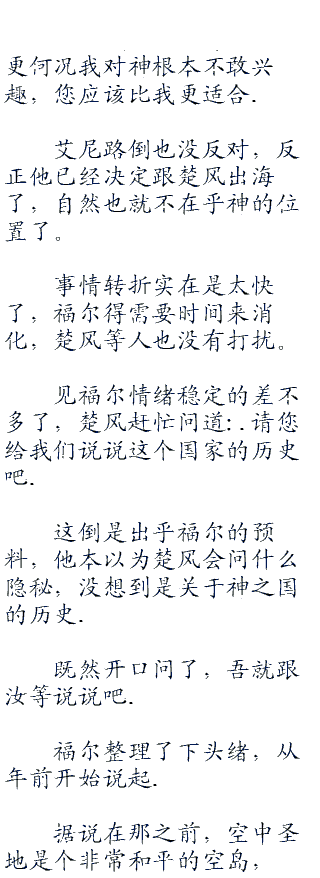 更何况我对神根本不敢兴
趣，您应该比我更适合.
艾尼路倒也没反对，反
正他已经决定跟楚风出海
了，自然也就不在乎神的位
置了。
事情转折实在是太快
了，福尔得需要时间来消
化，楚风等人也没有打扰。
见福尔情绪稳定的差不
多了，楚风赶忙问道:.请您
给我们说说这个国家的历史
吧.
这倒是出乎福尔的预
料，他本以为楚风会问什么
隐秘，没想到是关于神之国
的历史.
既然开口问了，吾就跟
汝等说说吧.
福尔整理了下头绪，从
年前开始说起.
据说在那之前，空中圣
地是个非常和平的空岛，